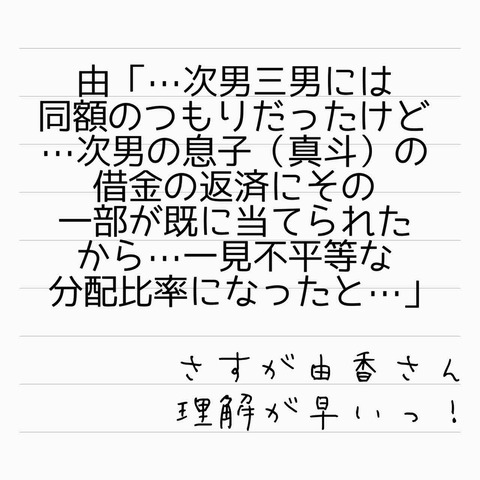 由「…次男三男には
同額のつもりだったけど
…次男の息子（真斗）の
借金の返済にその
一部が既に当てられた
から…一見不平等な
分配比率になったと…」
さすが由香さん
理解が早いっ！